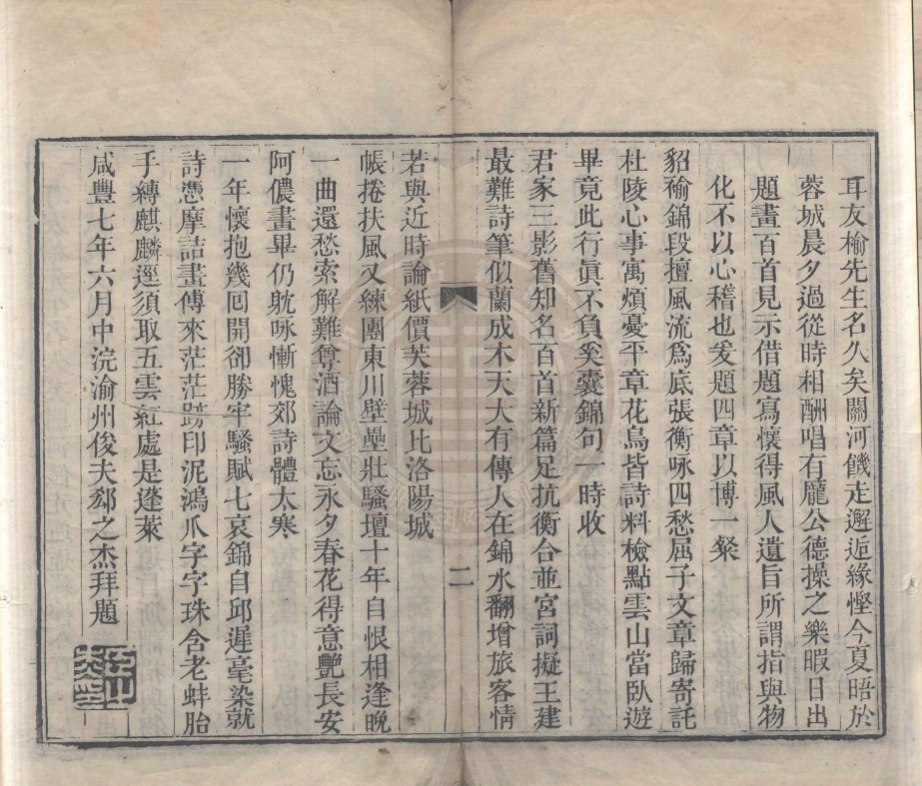 耳友榆先生名久矣關河饑走邂逅緣慳今夏晤於
蓉城晨夕過從時相酬唱有龐公德操之樂暇日出
題畫百首見示借題寫懷得風人遺旨所謂指與物
化不以心稽也爰題四章以博一粲
貂褕錦段擅風流為底張衡咏四愁屈子文章歸寄託
杜陵心事寓煩憂平章花鳥皆詩料檢點雲山當臥遊
畢竟此行眞不負奚囊錦句一時收
君家三影舊知名百首新篇足抗衡合並宮詞擬王建
最難詩筆似蘭成木天大有傳人在錦水翻增旅客情
若與近時論紙價芙蓉城比洛陽城
二
帳捲扶風又練團東川壁壘壯騷壇十年自恨相逢晚
一曲還愁索解難尊酒論文忘永夕春花得意艷長安
阿儂畫畢仍躭咏慚愧郊詩體太寒
一年懷抱幾回開卻勝牢騷賦七哀錦自邱遲毫染就
詩憑摩詰畫傳來茫茫踏印泥鴻爪字字珠含老蚌胎
手縛麒麟逕須取五雲紅處是蓬萊
咸豐七年六月中浣渝州俊夫郄之杰拜題